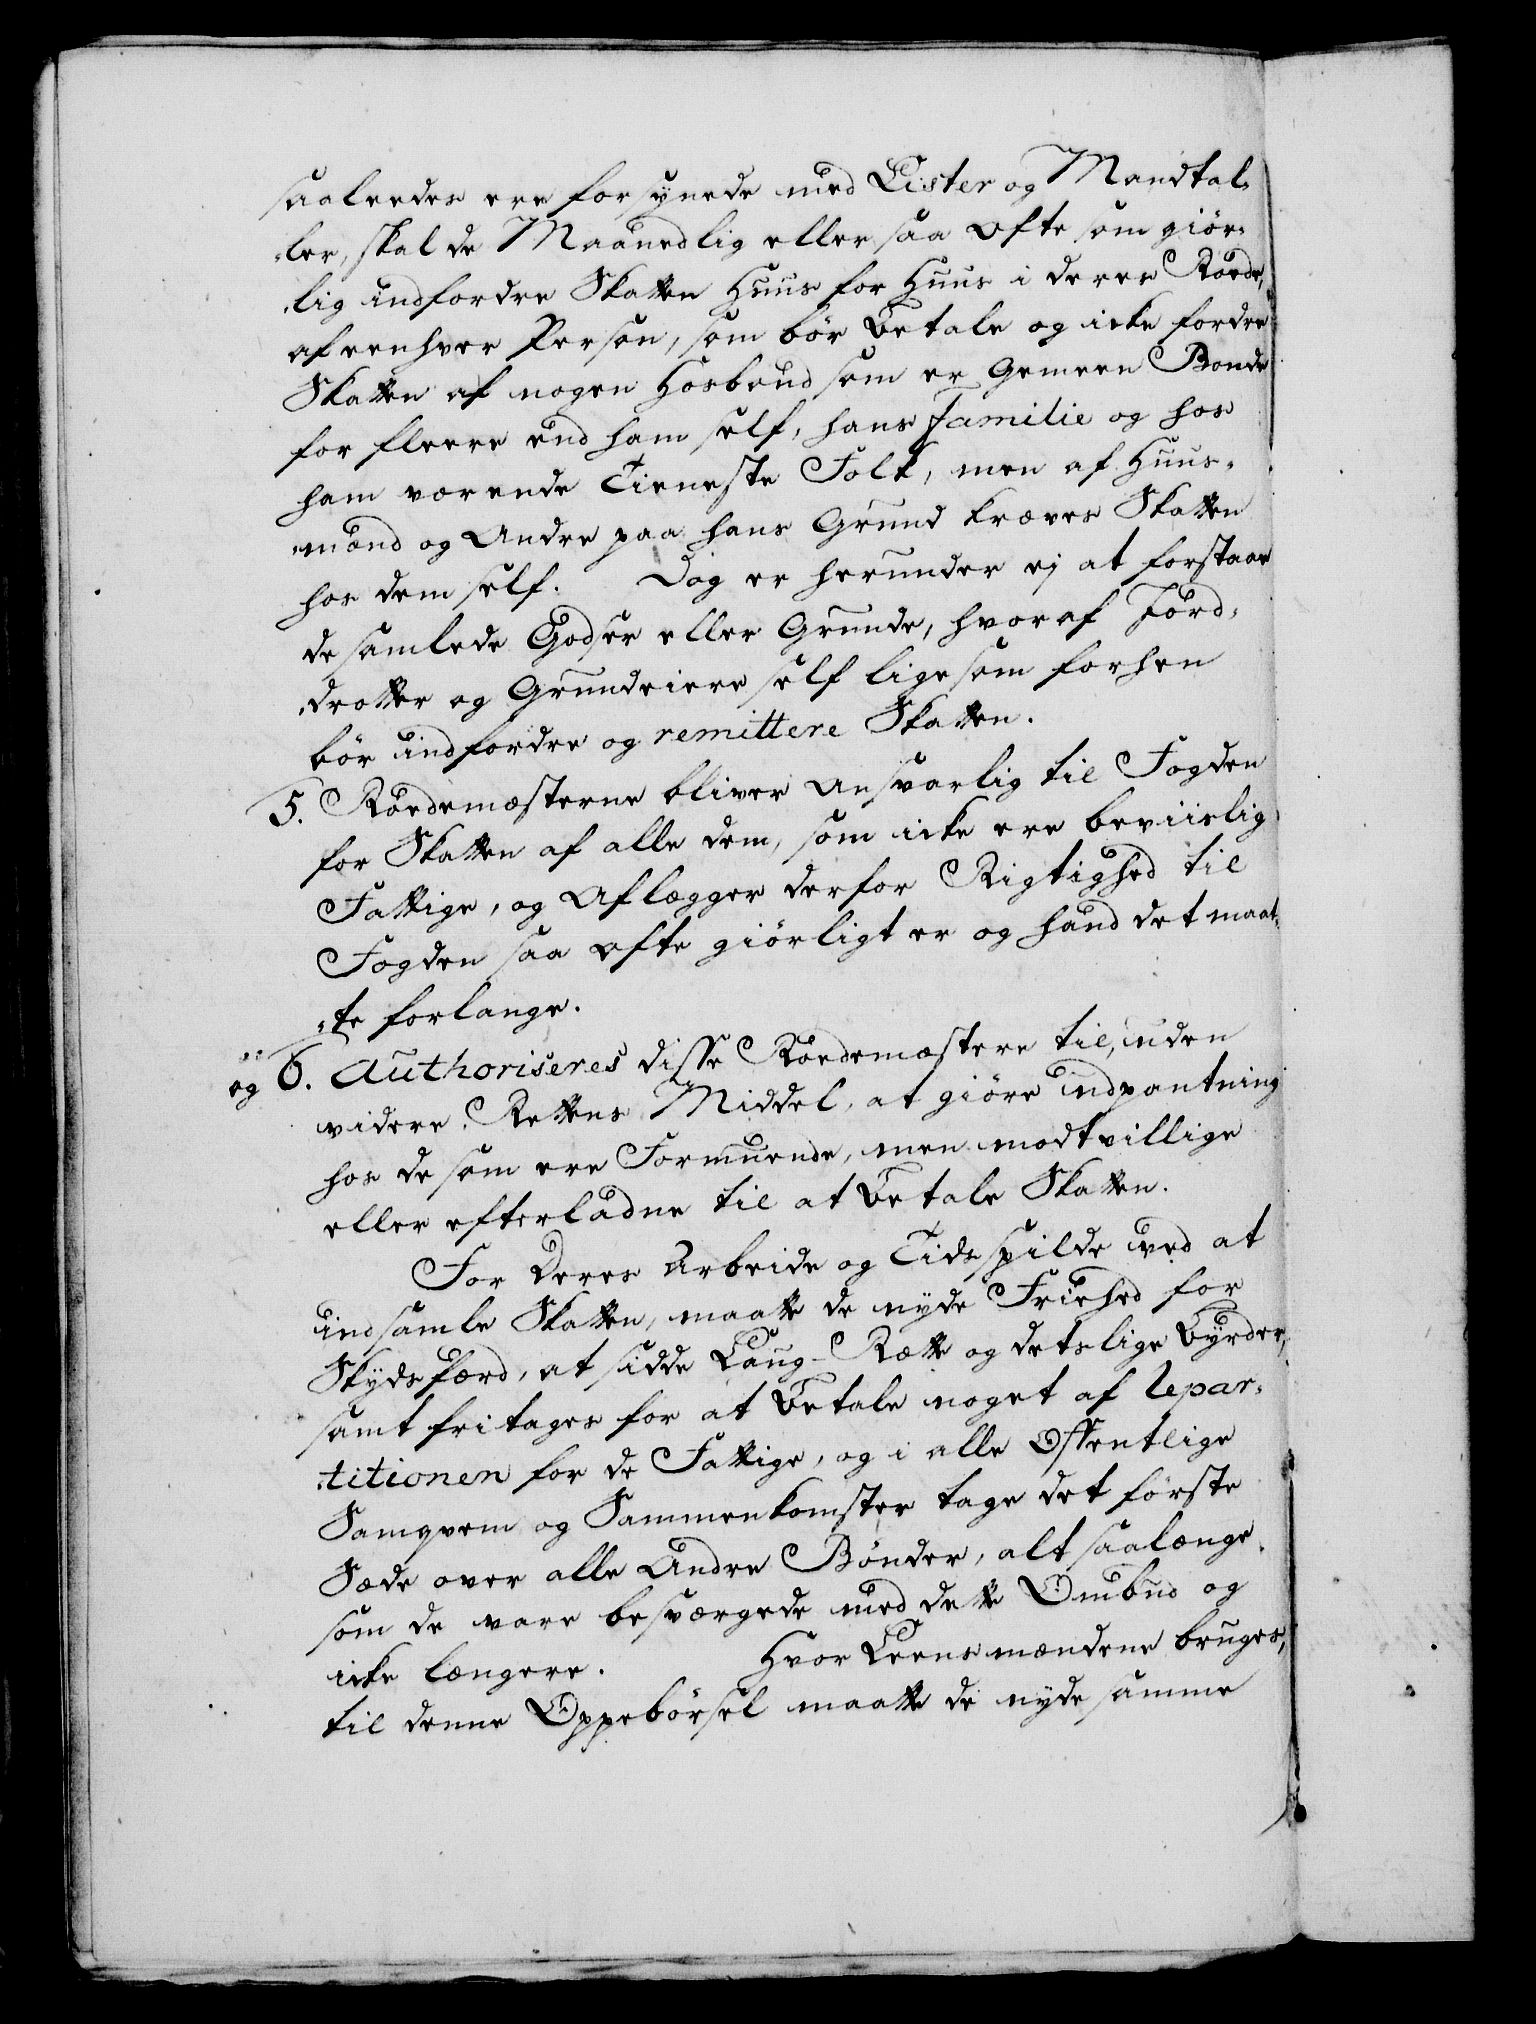 saaleedes ere forsynede med Lister og Mandtal-
-ler, skal de Maanedlig eller saa ofte som giør-
-lig indfordre Skatten Huus for Huus i deres Roede,
af eenhver Person, som bør betale og icke fordre
Skatten af nogen Hosbond som er Gemeen Bonde
for fleere end ham self, hans Familie og hos
ham værende Tieneste Folk, men af Huus-
-mænd og Andre paa hans Grund kræves Skatten
hos dem self. Dog er herunder ej at forstaae
de samlede Godser eller Grunde, hvoraf Jord-
-drotter og Grundeiere self ligesom forhen
bør indfordre og remittere Skatten.
5. Roedemæsterne bliver Ansvarlig til Fogden
for Skatten af alle dem, som icke ere beviislig
Fattige, og Aflægger derfor Rigtighed til
Fogden saa ofte giørligt er og hand det maat-
-te forlange.
og 6. Authoriseres disse Roedemæstere til, uden
videre Rettens Middel, at giøre indpantning
hos de som ere Formuende, men modtvillige
eller efterladne til at betale Skatten.
For Deres Arbeide og Tids spilde ved at
indsamle Skatten, maatte de nyde Friehed for
Skydsfærd, at sidde Laug-Rætte og detslige Byrder,
samt fritages for at betale noget af Repar-
-titionen for de Fattige, og i alle Offentlige
Samqvem og Sammenkomster tage det første
Sæde over alle Andre Bønder, alt saalænge
som de vare besværgede med dette Ombud og
icke længere. Hvor Leensmændene bruges,
til denne Oppebørsel maatte de nyde samme